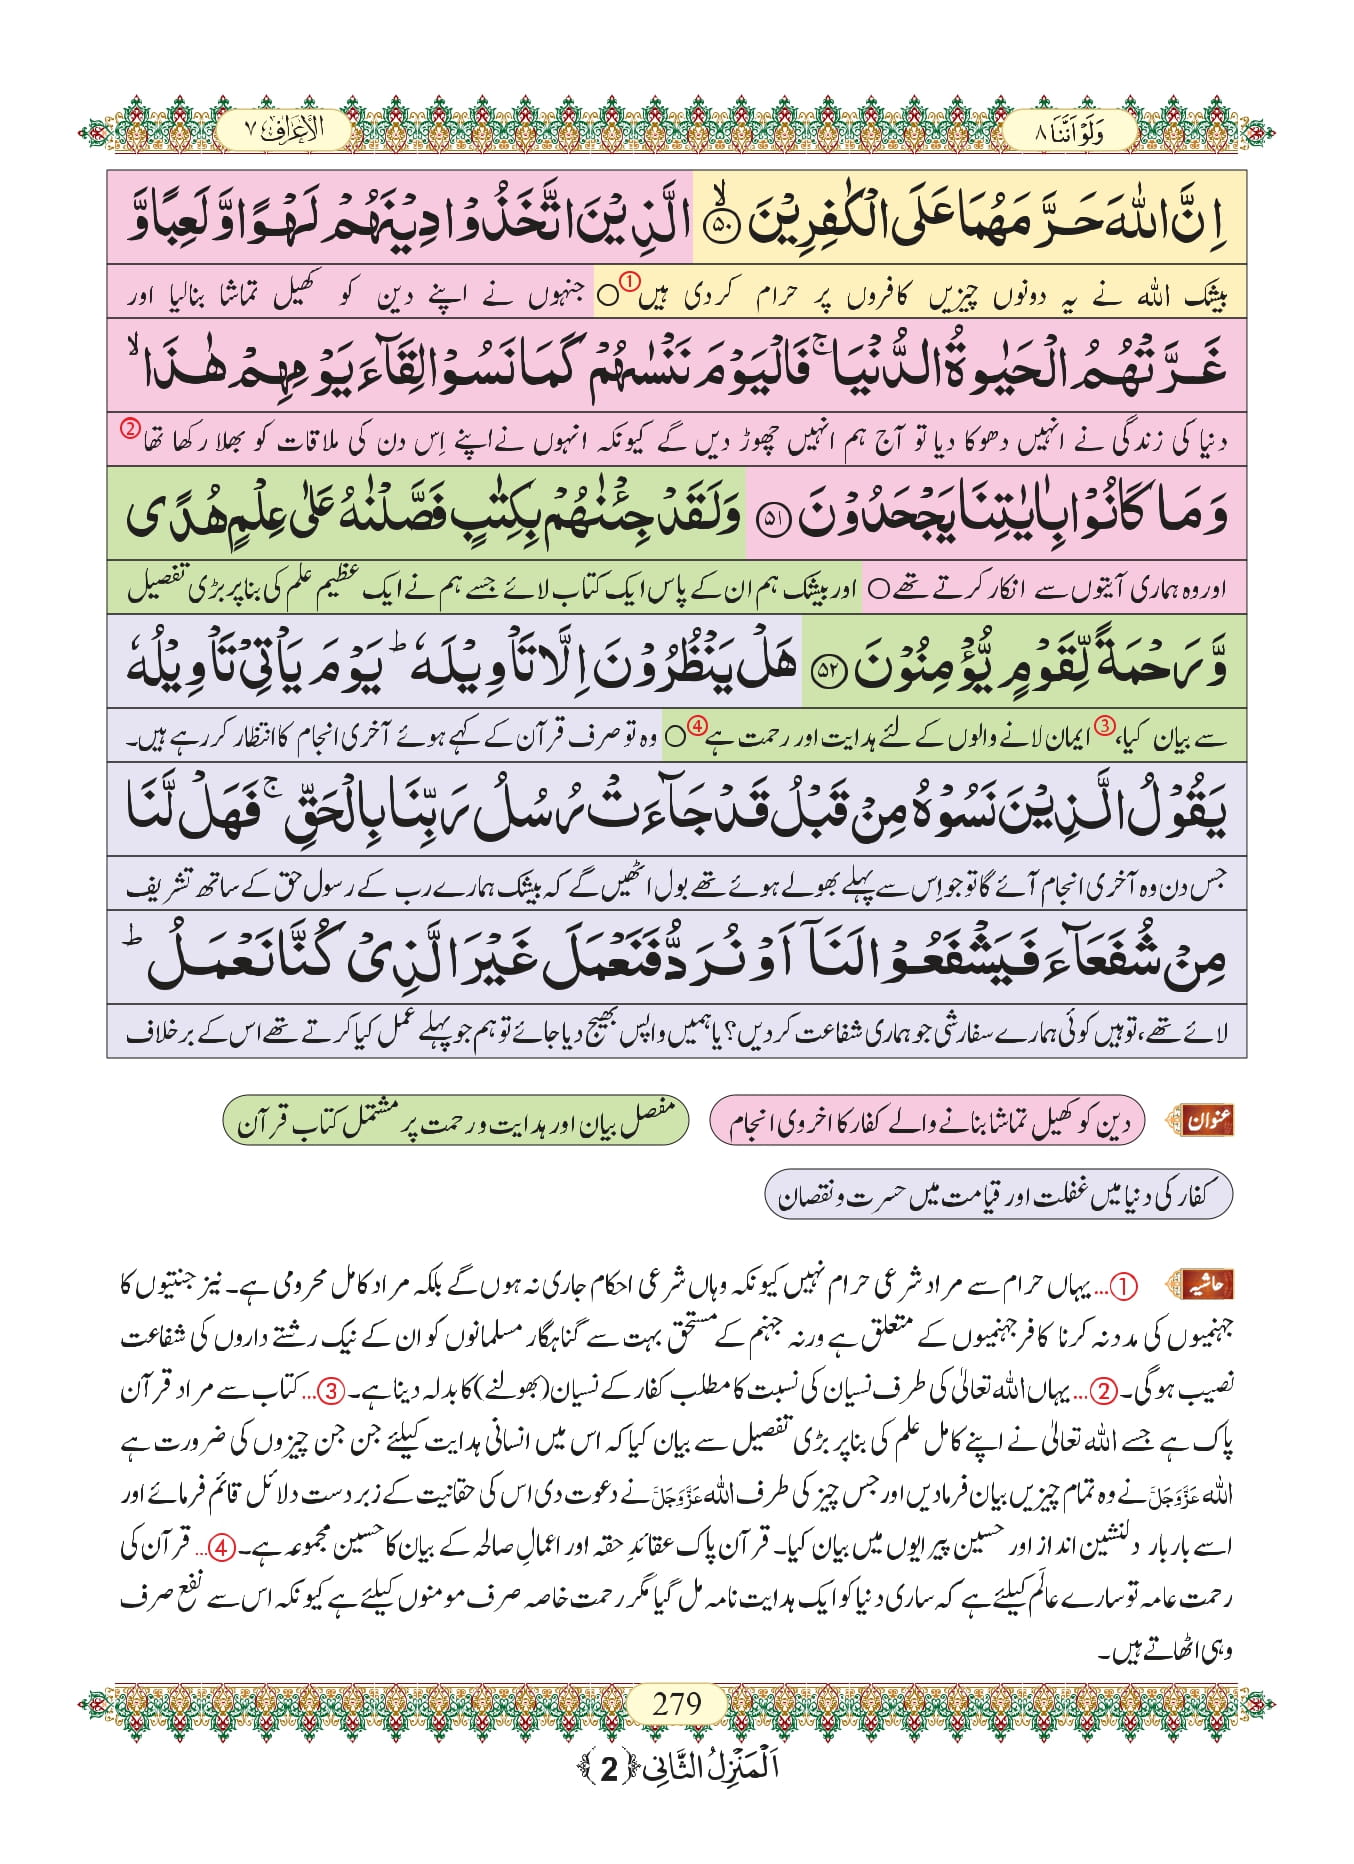 وَلَوْ اَنَّنَا ٨
الْاَعْرَاف ٧
اِنَّ اللّٰهَ حَرَّمَهُمَا عَلَى الْكٰفِرِیْنَۙ﴿۵۰﴾ الَّذِیْنَ اتَّخَذُوْا دِیْنَهُمْ لَهْوًا وَّ لَعِبًا وَّ
بیشک اللہ نے یہ دونوں چیزیں کافروں پر حرام کردی ہیں①○ جنہوں نے اپنے دین کو کھیل تماشا بنالیا اور
غَرَّتْهُمُ الْحَیٰوةُ الدُّنْیَاۚ فَالْیَوْمَ نَنْسٰىهُمْ كَمَا نَسُوْا لِقَآءَ یَوْمِهِمْ هٰذَاۙ
دنیا کی زندگی نے انہیں دھوکا دیا تو آج ہم انہیں چھوڑ دیں گے کیونکہ انہوں نے اپنے اِس دن کی ملاقات کو بھلا رکھا تھا②
وَ مَا كَانُوْا بِاٰیٰتِنَا یَجْحَدُوْنَ﴿۵۱﴾ وَ لَقَدْ جِئْنٰهُمْ بِكِتٰبٍ فَصَّلْنٰهُ عَلٰى عِلْمٍ هُدًى
اور وہ ہماری آیتوں سے انکار کرتے تھے○ اور بیشک ہم ان کے پاس ایک کتاب لائے جسے ہم نے ایک عظیم علم کی بنا پر بڑی تفصیل
وَّ رَحْمَةً لِّقَوْمٍ یُّؤْمِنُوْنَ﴿۵۲﴾ هَلْ یَنْظُرُوْنَ اِلَّا تَاْوِیْلَهٗؕ یَوْمَ یَاْتِیْ تَاْوِیْلُهٗ
سے بیان کیا،③ ایمان لانے والوں کے لئے ہدایت اور رحمت ہے④○ وہ تو صرف قرآن کے کہے ہوئے آخری انجام کا انتظار کررہے ہیں۔
یَقُوْلُ الَّذِیْنَ نَسُوْهُ مِنْ قَبْلُ قَدْ جَآءَتْ رُسُلُ رَبِّنَا بِالْحَقِّۚ فَهَلْ لَّنَا
جس دن وہ آخری انجام آئے گا تو جو اِس سے پہلے بھولے ہوئے تھے بول اٹھیں گے کہ بیشک ہمارے رب کے رسول حق کے ساتھ تشریف
مِنْ شُفَعَآءَ فَیَشْفَعُوْا لَنَاۤ اَوْ نُرَدُّ فَنَعْمَلَ غَیْرَ الَّذِیْ كُنَّا نَعْمَلُؕ
لائے تھے، تو ہیں کوئی ہمارے سفارشی جو ہماری شفاعت کردیں؟ یا ہمیں واپس بھیج دیا جائے تو ہم جو پہلے عمل کیا کرتے تھے اس کے برخلاف
عنوان دین کو کھیل تماشا بنانے والے کفار کا اخروی انجام مفصل بیان اور ہدایت و رحمت پر مشتمل کتاب قرآن
کفار کی دنیا میں غفلت اور قیامت میں حسرت و نقصان
حاشیہ ①... یہاں حرام سے مراد شرعی حرام نہیں کیونکہ وہاں شرعی احکام جاری نہ ہوں گے بلکہ مراد کامل محرومی ہے۔ نیز جنتیوں کا
جہنمیوں کی مدد نہ کرنا کافر جہنمیوں کے متعلق ہے ورنہ جہنم کے مستحق بہت سے گناہگار مسلمانوں کو ان کے نیک رشتے داروں کی شفاعت
نصیب ہوگی۔ ②... یہاں اللہ تعالیٰ کی طرف نسیان کی نسبت کا مطلب کفار کے نسیان (بھولنے) کا بدلہ دینا ہے۔ ③... کتاب سے مراد قرآن
پاک ہے جسے اللہ تعالیٰ نے اپنے کامل علم کی بنا پر بڑی تفصیل سے بیان کیا کہ اس میں انسانی ہدایت کیلئے جن جن چیزوں کی ضرورت ہے
اللہ عَزَّوَجَلَّ نے وہ تمام چیزیں بیان فرمادیں اور جس چیز کی طرف اللہ عَزَّوَجَلَّ نے دعوت دی اس کی حقانیت کے زبردست دلائل قائم فرمائے اور
اسے بار بار دلنشین انداز اور حسین پیرایوں میں بیان کیا۔ قرآن پاک عقائدِ حقہ اور اعمالِ صالحہ کے بیان کا حسین مجموعہ ہے۔ ④... قرآن کی
رحمت عامہ تو سارے عالَم کیلئے ہے کہ ساری دنیا کو ایک ہدایت نامہ مل گیا مگر رحمت خاصہ صرف مومنوں کیلئے ہے کیونکہ اس سے نفع صرف
وہی اٹھاتے ہیں۔
279
اَلْمَنْزِلُ الثَّانِی ﴿2﴾